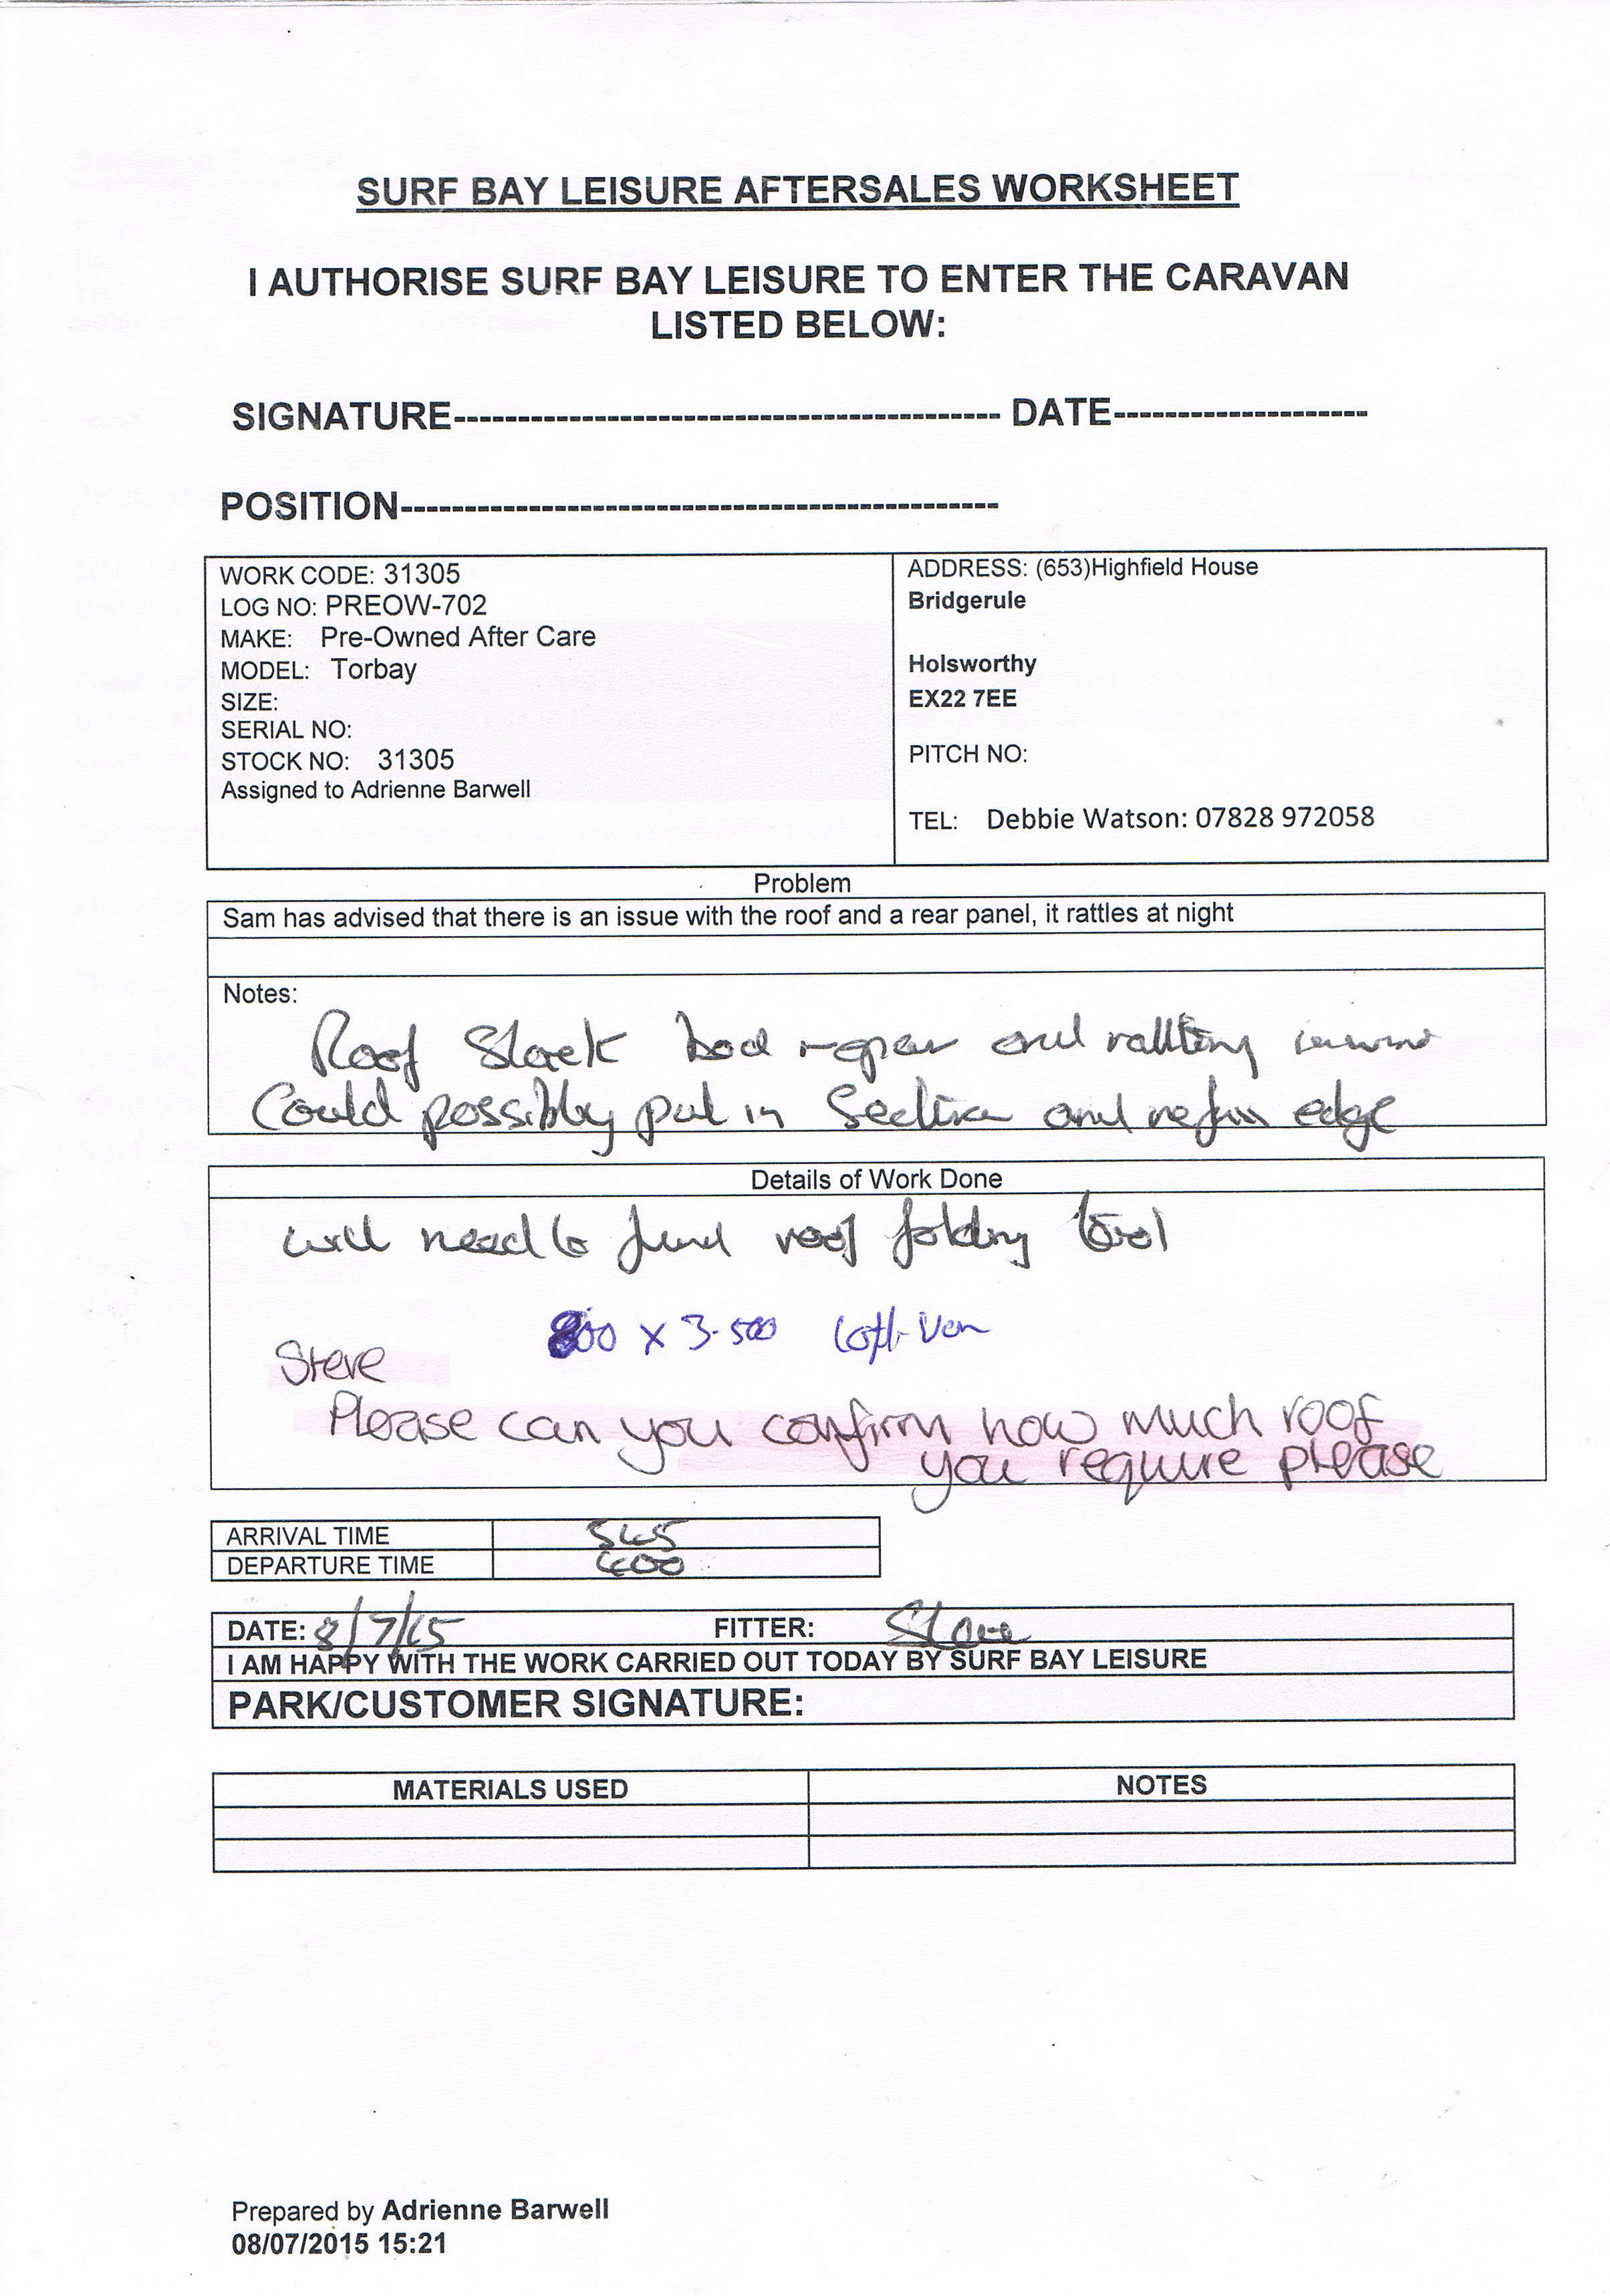 SURF BAY LEISURE AFTERSALES WORKSHEET
I AUTHORISE SURF BAY LEISURE TO ENTER THE CARAVAN
LISTED BELOW:
SIGNATURE------------------------------------------- DATE--------------------
POSITION-----------------------------------------------
WORK CODE: 31305
LOG NO: PREOW-702
MAKE: Pre-Owned After Care
MODEL: Torbay
SIZE:
SERIAL NO:
STOCK NO: 31305
Assigned to Adrienne Barwell
ADDRESS: (653)Highfield House
Bridgerule
Holsworthy
EX22 7EE
PITCH NO:
TEL: Debbie Watson: 07828 972058
Problem
Sam has advised that there is an issue with the roof and a rear panel, it rattles at night
Notes:
Roof Slack bad repair and rattling
Could possibly put in Section and edge
Details of Work Done
will need to find roof folding tool
800 x 3.500
Steve
Please can you confirm how much roof
you require please
ARRIVAL TIME 345
DEPARTURE TIME 400
DATE: 8/7/15 FITTER: Steve
I AM HAPPY WITH THE WORK CARRIED OUT TODAY BY SURF BAY LEISURE
PARK/CUSTOMER SIGNATURE:
MATERIALS USED NOTES
Prepared by Adrienne Barwell
08/07/2015 15:21